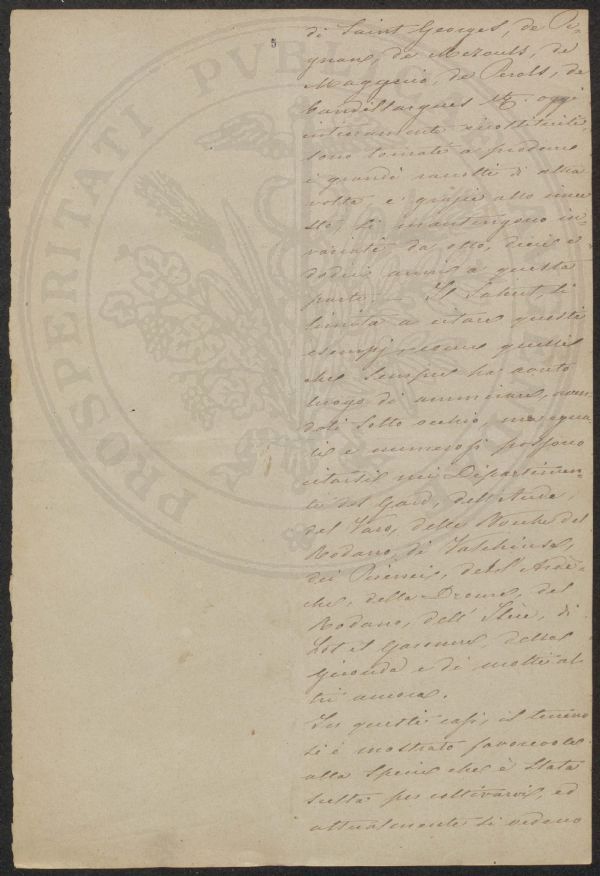 di Saint Georges, de Pi-
gnan, de Mezouls, de
Mauguio, de Perols, de
Candillargues &. oggi
interamente ricostituite,
sono tornate a produrre
i grandi raccolti di altra
volta e grazie allo inne
sto, si mantengono in-
variati da otto, dieci e
dodici anni a questa
parte. — Il Sahut, si
limita a citare questi
esempj, come quelli
che sempre ha avuto
luogo di ammirare, aven
doli sotto occhio, ma egua
li e numerosi possono
citarsi nei Dipartimen-
ti del Gard, dell'Aude,
del Varo, delle Bocche del
Rodano, di Valchiusa,
dei Pirenei, dell'Ardè-
che, della Drome, del
Rodano, dell'Isère, di
Lot et Garonne, della
Gironda e di molti al
tri ancora.
In questi casi, il terreno
si è mostrato favorevole
alla specie che è stata
scelta per coltivarvi, ed
attualmente si vedono
PROSPERITATI PVBLICAE